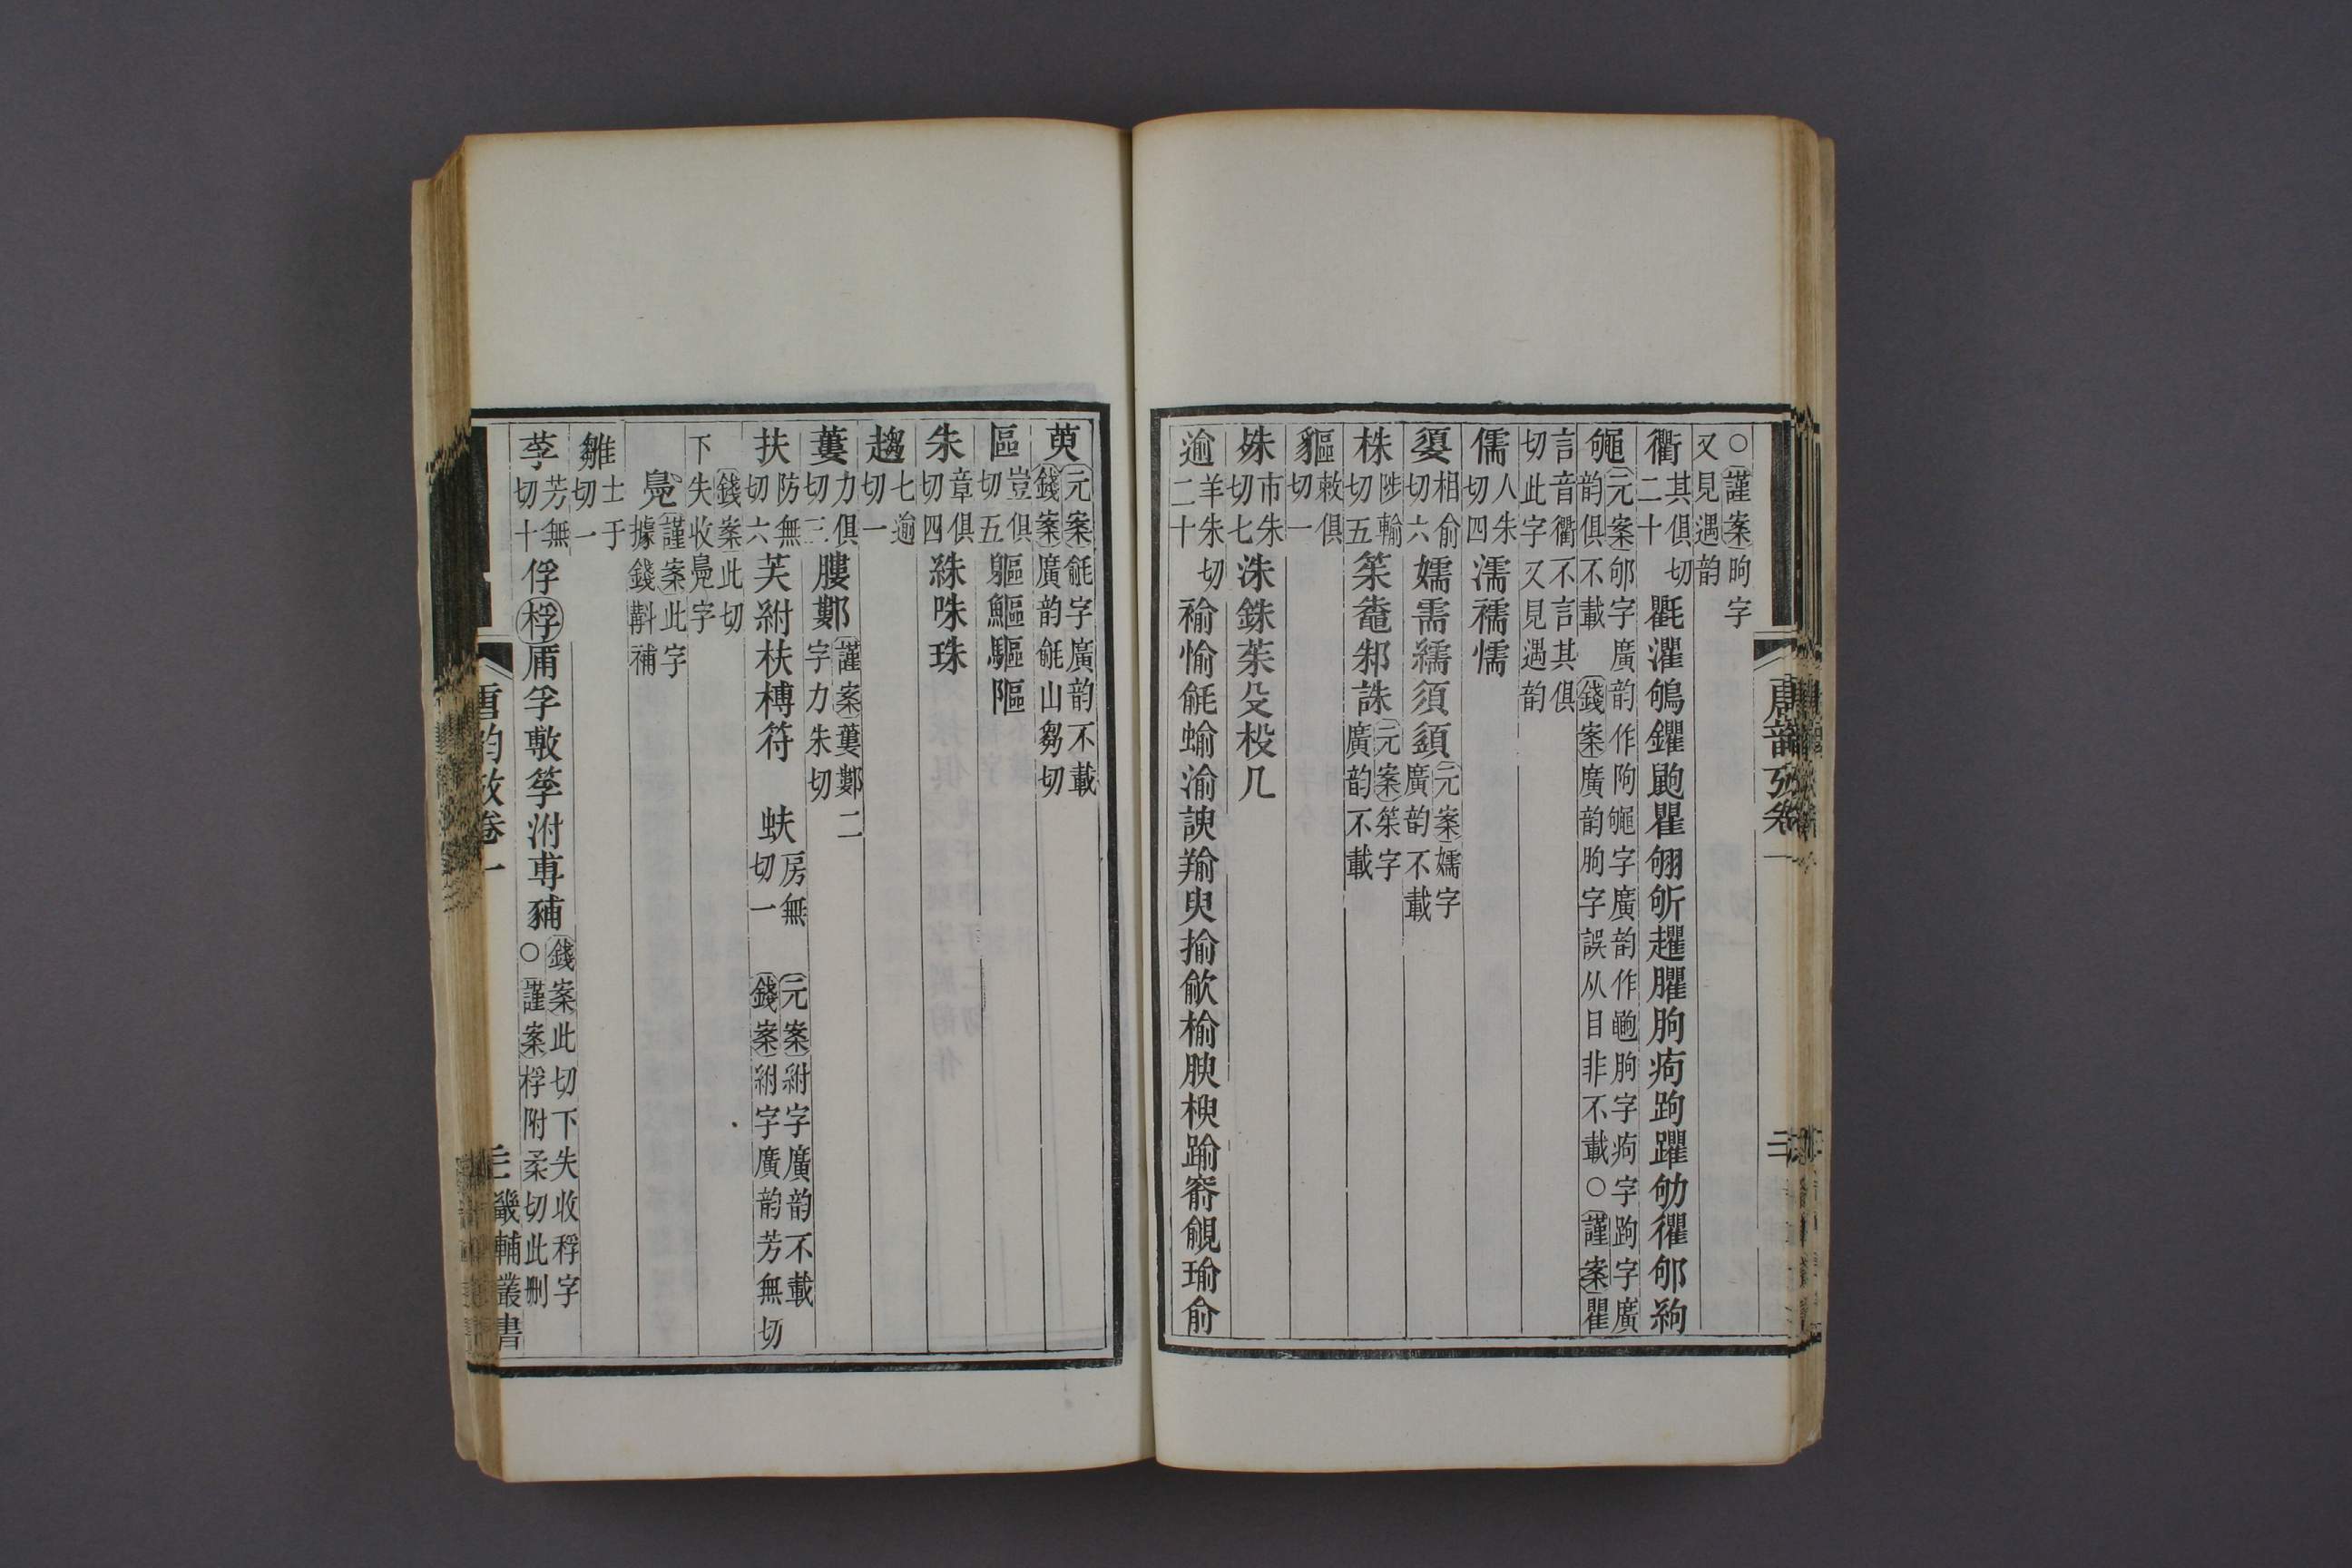 ○謹案昫字
又見遇韵
衢其俱切二十氍灌鴝鑺鼩瞿翑斪趯臞朐痀跔躍劬忂邭絇
𪓰元案邭字廣韵作䧁𪓰字廣韵作鼩朐字痀字跔字廣
韵俱不載 錢案廣韵朐字誤从目非不載○謹案瞿
言音衢不言其俱
切此字又見遇韵
儒人朱切四濡襦懦
嬃相俞切六嬬需繻須頾元案嬬字廣韵不載
株陟輸切五䇡鼄邾誅元案䇡字廣韵不載
貙敕俱切一
殊市朱切七洙銖茱殳杸几
逾羊朱切二十褕愉㼶蝓渝諛羭臾揄歈榆腴楰踰窬覦瑜俞
萸元案㼶字廣韵不載
錢案廣韵㼶山芻切
區豈俱切五軀鰸驅䧢
朱章俱切四絑咮珠
趨七逾切一
蔞力俱切三膢鄻謹案蔞鄻二字力朱切
扶防無切六芙紨枎榑符 蚨房無切一 元案紨字廣韵不載
錢案紨字廣韵芳無切
錢案此切
下失收鳧字
鳧謹案此字據錢斠補
雛士于切一
荂芳無切十俘桴𤰈孚敷筟泭尃豧錢案此切下失收稃字
○謹案桴附柔切此刪
唐韵攷卷一
畿輔叢書